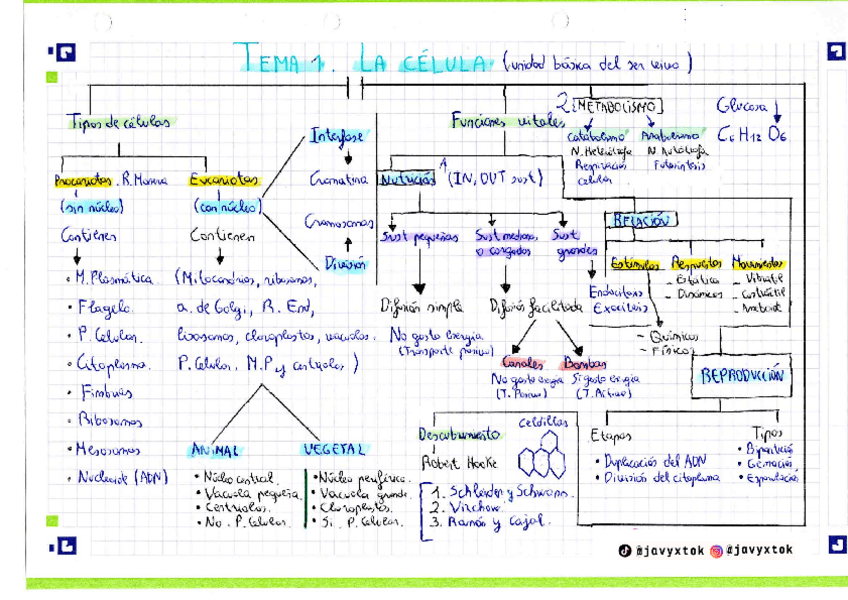 TEMA 1. LA CÉLULA (unidad básica del ser vivo)
Tipos de células
Procariotas. R. Monera
(sin núcleo)
Contienen
• M. Plasmática.
• Flagelo.
• P. Celular.
• Citoplasma.
• Fimbrias
• Ribosomas
• Mesosomas
• Nucleoide (ADN)
Eucariotas
(con núcleo)
Contienen
(Mitocondrias, ribosomas,
a. de Golgi, R. End,
lisosomas, cloroplastos, vacuolas.
P. Celular, M.P y centriolos)
ANIMAL
• Núcleo central.
• Vacuola pequeña.
• Centriolos.
• No. P. Celular.
VEGETAL
• Núcleo periférico.
• Vacuola grande.
• Cloroplastos.
• Si. P. Celular.
Interfase
Cromatina
Cromosomas
División
Funciones vitales
Nutrición (IN, OUT sust)
Sust pequeñas
Difusión simple
No gasta Energía
(Transporte pasivo)
Sust medianas,
o cargadas
Difusión facilitada
Canales
No gasta energia
(T. Pasivo)
Bombas
Si gasta energia
(T. Activo)
Sust
grandes
Endocitosis
Exocitosis
2. METABOLISMO
Catabolismo
N. Heterótrofa
Respiración
celular
Anabolismo
N. Autótrofa
Fotosíntesis
Glucosa
C6 H12 O6
RELACIÓN
Estímulos
- Químicos
- Físicos
Respuestas
- Estática
- Dinámicas
Movimientos
- Vibrátil
- Contráctil
- Ameboide
REPRODUCCIÓN
Etapas
• Duplicación del ADN
• División del citoplasma
Tipos
• Bipartición
• Gemación
• Esporulación
Descubrimiento
Robert Hooke
celdillas
1. Schleider y Schwann.
2. Virchow.
3. Ramón y Cajal.
@javyxtok @javyxtok